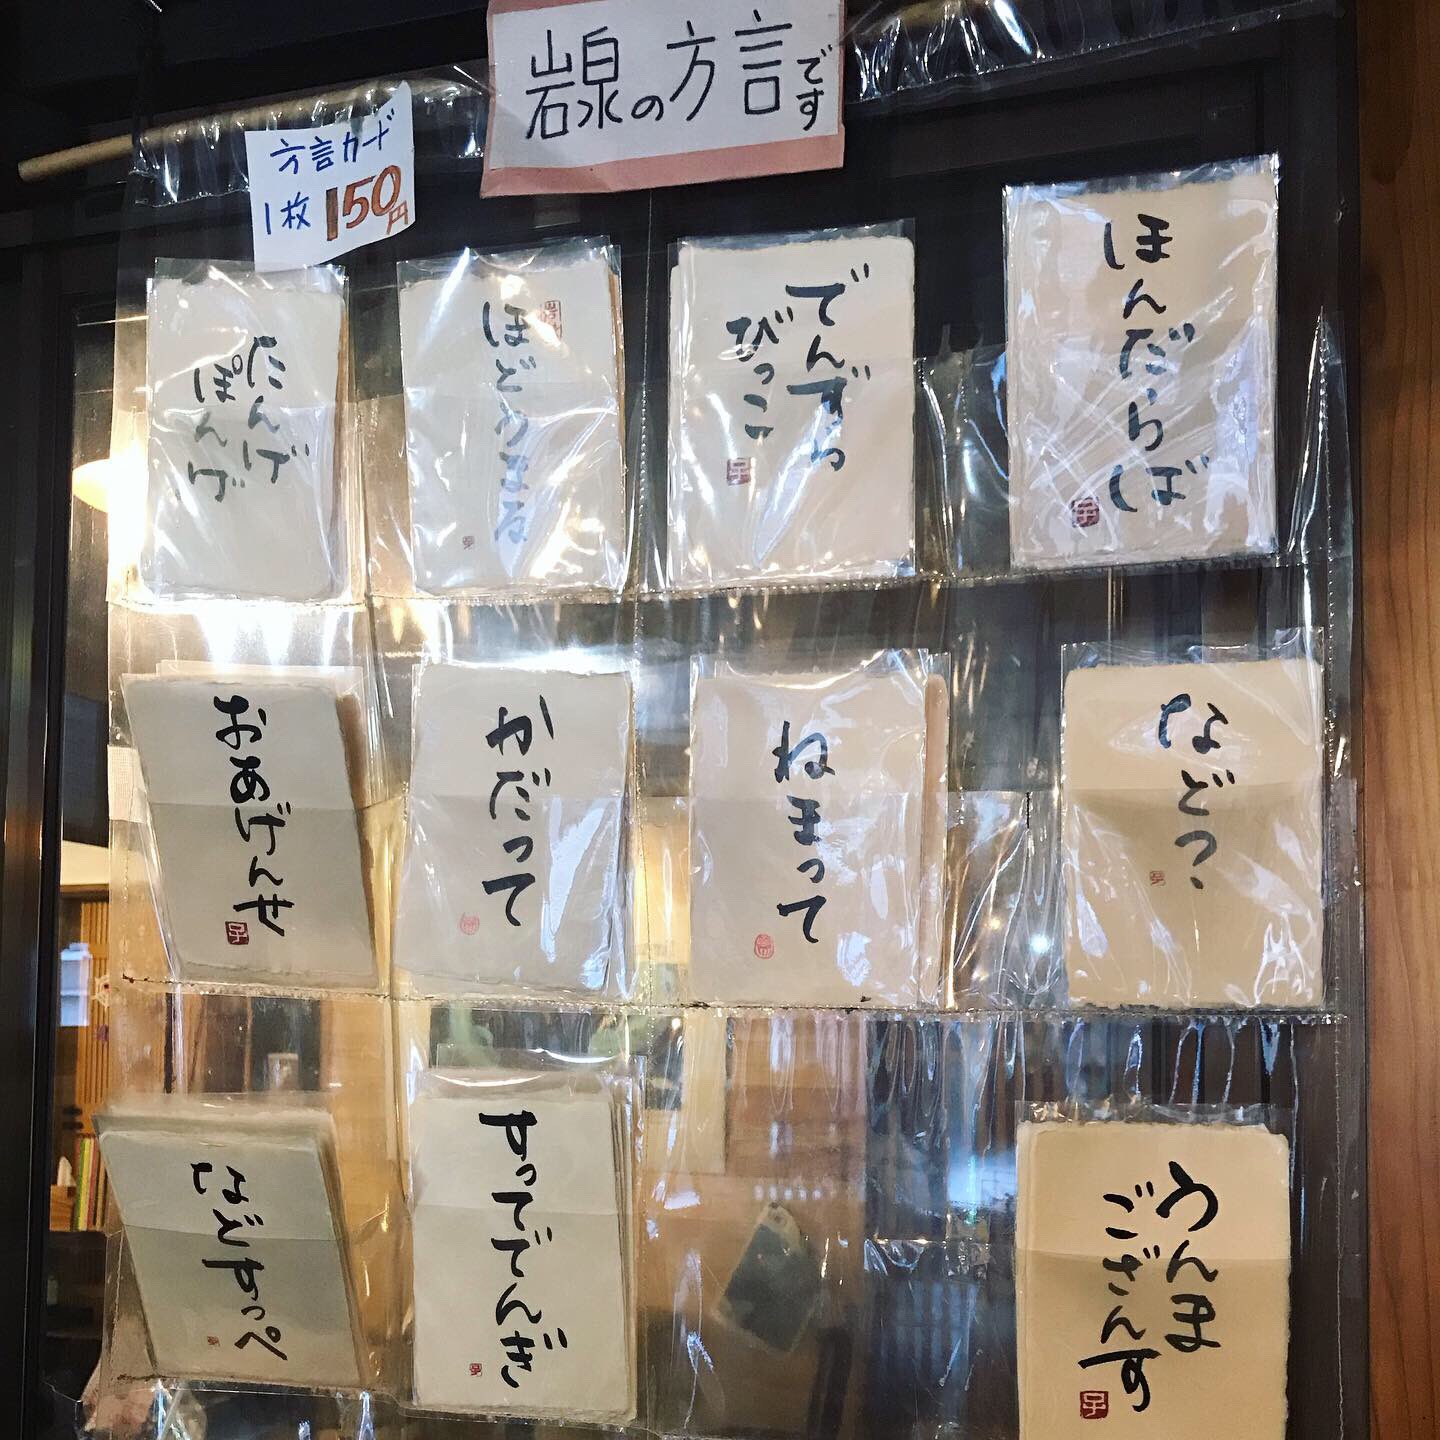 岩泉の方言です
方言カード
1枚150円
たんげ
ぽんげ
ほどうまる
でんずら
びっこ
ほんだらば
おあげんせ
かだって
ねまって
などつ
はどすっぺ
すってでんぎ
うんま
ござんす